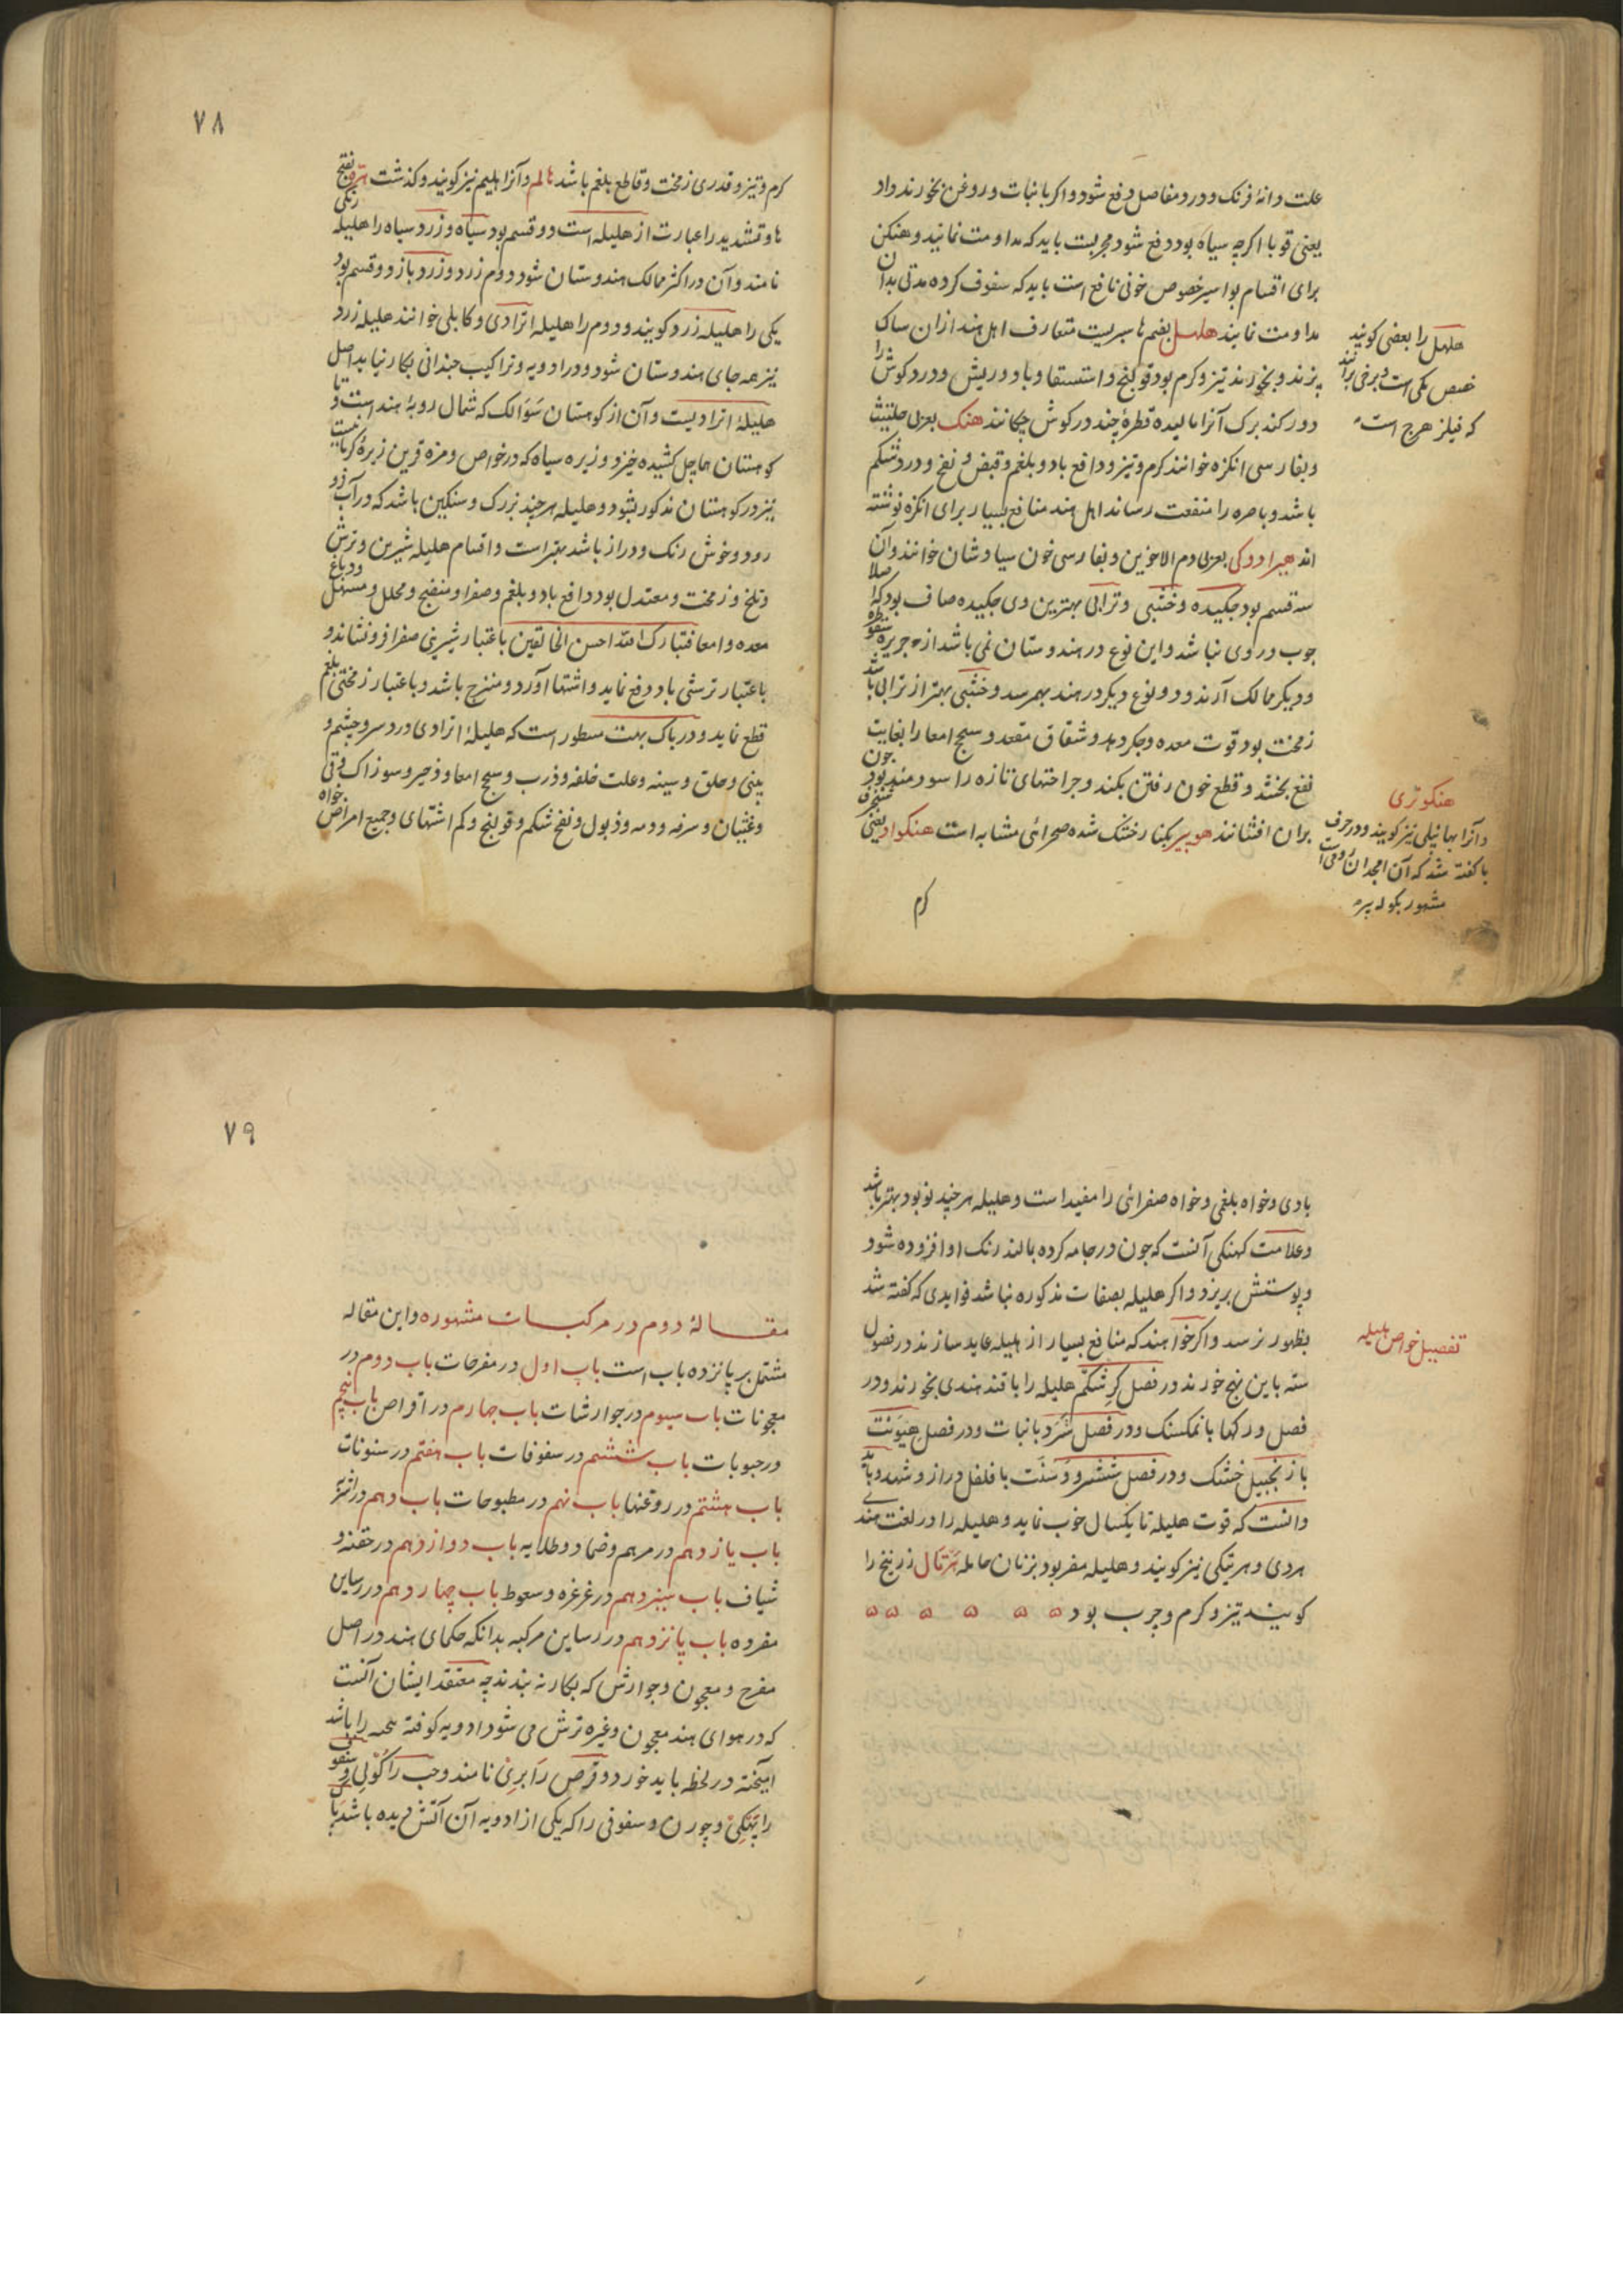 علت دانهٔ فرنک و درد مفاصل دفع شود و اکر با نبات و روغن بخورند داد
یعنی قوبا اکرچه سیاه بود دفع شود مجربست باید که مداومت نمایند و هنکن
برای اقسام بواسیر خصوص خونی نافع است باید که سفوف کرده مدتی بدان
مداومت نمایند هلهل بضم ها سبزیست متعارف اهل هند ازان ساک
پزند و بخورند تیز و کرم بود قولنج و استسقا و باد و ریش و درد کوش را
دور کند برک آنرا مالیده قطرهٔ چند در کوش چکانند هنک بعربی حلتیت
و بفارسی انکزه خوانند کرم و تیز و دافع باد و بلغم و قبض و نفخ و درد شکم
باشد و باصره را منفعت رساند اهل هند منافع بسیار برای انکزه نوشته
اند هیرادوکی بعربی دم الاخوین و بفارسی خون سیاوشان خوانند و آن
سه قسم بود چکیده و خشبی و ترابی بهترین وی چکیده صاف بود که اصلا
چوب در وی نباشد و این نوع در هندوستان نمی باشد از جزیره سقوطره
و دیکر ممالک آرند و دو نوع دیکر در هند بهم رسد و خشبی بهتر از ترابی باشد
زمخت بود قوت معده و جکر دهد و شقاق مقعد و سحج امعا را بغایت
نفع بخشد و قطع خون رفتن بکند و جراحتهای تازه را سودمند بود چون
بران افشانند هوبیر بکنار خشک شده صحرائی مشابه است هنکواد یعنی
کرم
هلهل را بعضی کویند
که فیلز هرج است
هنکوتری
و آنرا بهاپلی نیز کویند و در حرف
با کفته شد که آن انجدان
مشهور بکوله پر
۷۸
کرم و تیز و قدری زمخت و قاطع بلغم باشد هالم و آنرا هلیم نیز کویند و کذشت هر بفتح
ها و تشدید را عبارت از هلیله است و دو قسم بود سیاه و زرد و سیاه را هلیله زنکی
نامند و آن در اکثر ممالک هندوستان شود و دوم زرد و زرد باز دو قسم بود
یکی را هلیله زرد کویند و دوم را هلیله اترادی و کابلی خوانند هلیله زرد
نیز همه جای هندوستان شود و در ادویه و تراکیب چندانی بکار نیاید اصل
هلیلهٔ اترادیست و آن از کوهستان سوالک که شمال رویهٔ هند است و تا
کوهستان هماچل کشیده خیزد و زیره سیاه که در خواص و مزه قرین زیرهٔ کرمانیست
نیز در کوهستان مذکور بشود و هلیله هرچند بزرک و سنکین باشد که در آب فرو
رود و خوش رنک و دراز باشد بهتر است و اقسام هلیله شیرین و ترش
و تلخ و زمخت و معتدل بود دافع باد و بلغم و صفرا و منضج و محلل و مسهل
معده و امعا فتبارک الله احسن الخالقین باعتبار شیرینی صفرا فرونشاند و
باعتبار ترشی باد دفع نماید و اشتها آورد و منضج باشد و باعتبار زمختی بلغم
قطع نماید و در باک بهت مسطور است که هلیلهٔ اترادی درد سر و چشم و
بینی و حلق و سینه و علت خلفه و ذرب و سحج امعا و زحیر و سوزاک و قی
و غثیان و سرفه و دمه و ذبول و نفخ شکم و قولنج و کم اشتهای و جمیع امراض خواه
بادی و خواه بلغمی و خواه صفرائی را مفید است و هلیله هرچند نو بود بهتر باشد
و علامت کهنکی آنست که چون در جامه کرده بمالند رنک او افزوده شود
و پوستش بریزد و اکر هلیله بصفات مذکوره نباشد فوایدی که کفته شد
بظهور نرسد و اکر خواهند که منافع بسیار از هلیله عاید سازند در فصول
سته باین نهج خورند در فصل کرشکم هلیله را با قند هندی بخورند و در
فصل ورکها با نمکسنک و در فصل شرد با نبات و در فصل هیونت
با زنجبیل خشک و در فصل ششر و وسنت با فلفل دراز و شهد و باید
دانست که قوت هلیله تا یکسال خوب نماید و هلیله را در لغت هندی
هردی و هریتکی نیز کویند و هلیله مضر بود بزنان حامله هرتال زرنیخ را
کویند تیز و کرم و چرب بود ۵ ۵ ۵ ۵ ۵ ۵
تفصیل خواص هلیله
۷۹
مقالهٔ دوم در مرکبات مشهوره و این مقاله
مشتمل بر پانزده باب است باب اول در مفرحات باب دوم در
معجونات باب سیوم در جوارشات باب چهارم در اقراص باب پنجم
در حبوبات باب ششم در سفوفات باب هفتم در سنونات
باب هشتم در روغنها باب نهم در مطبوخات باب دهم در اشربه
باب یازدهم در مرهم و ضماد و طلایه باب دوازدهم در حقنه و
شیاف باب سیزدهم در غرغره و سعوط باب چهاردهم در رساین
مفرده باب پانزدهم در رساین مرکبه بدانکه حکمای هند در اصل
مفرح و معجون و جوارش که بکار نه بندند چه معتقد ایشان آنست
که در هوای هند معجون و غیره ترش می شود ادویه کوفته را باشد
آمیخته در لحظه باید خورد و قرص را بری نامند و حب را کولی و سفوف
را پهنکی و چورن و سفوفی را که یکی از ادویه آن آتش دیده باشد